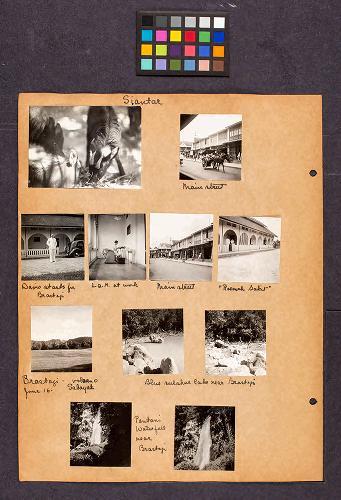 Siantar
Main street
Davis starts for
Brastagi
L.a.M. at work
Main street
"Roemah Sakit"
Brastagi - volcano
June 16. Sibayak
Blue sulphur lake near Brastagi
Waterfall
near
Brastagi